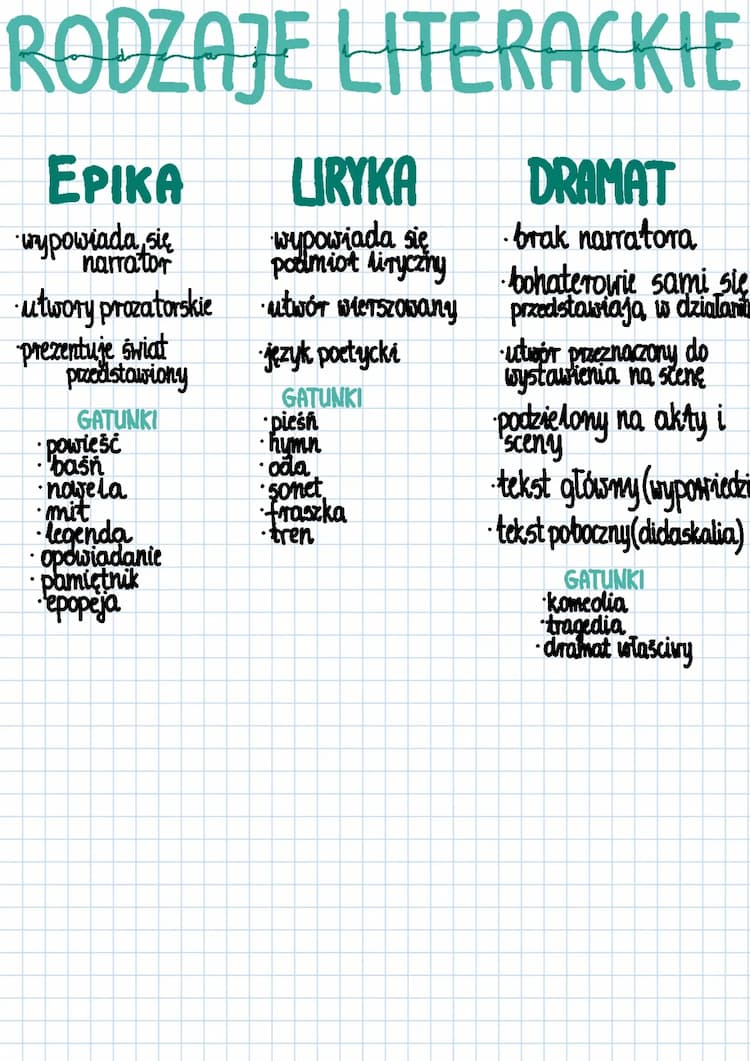 RODZAJE LITERACKIE
rodzaje literackie
EPIKA
· wypowiada się
narrator
· utwory prozatorskie
· prezentuje świat
przedstawiony
GATUNKI
· powieść
· baśń
· nowela
· mit
· legenda
· opowiadanie
· pamiętnik
· epopeja
LIRYKA
· wypowiada się
podmiot liryczny
· utwór wierszowany
· język poetycki
GATUNKI
· pieśń
· hymn
· oda
· sonet
· fraszka
· tren
DRAMAT
· brak narratora
· bohaterowie sami się
przedstawiają w działani
· utwór przeznaczony do
wystawienia na scenę
· podzielony na akty i
sceny
· tekst główny (wypowiedzi
· tekst poboczny (didaskalia)
GATUNKI
· komedia
· tragedia
· dramat właściwy